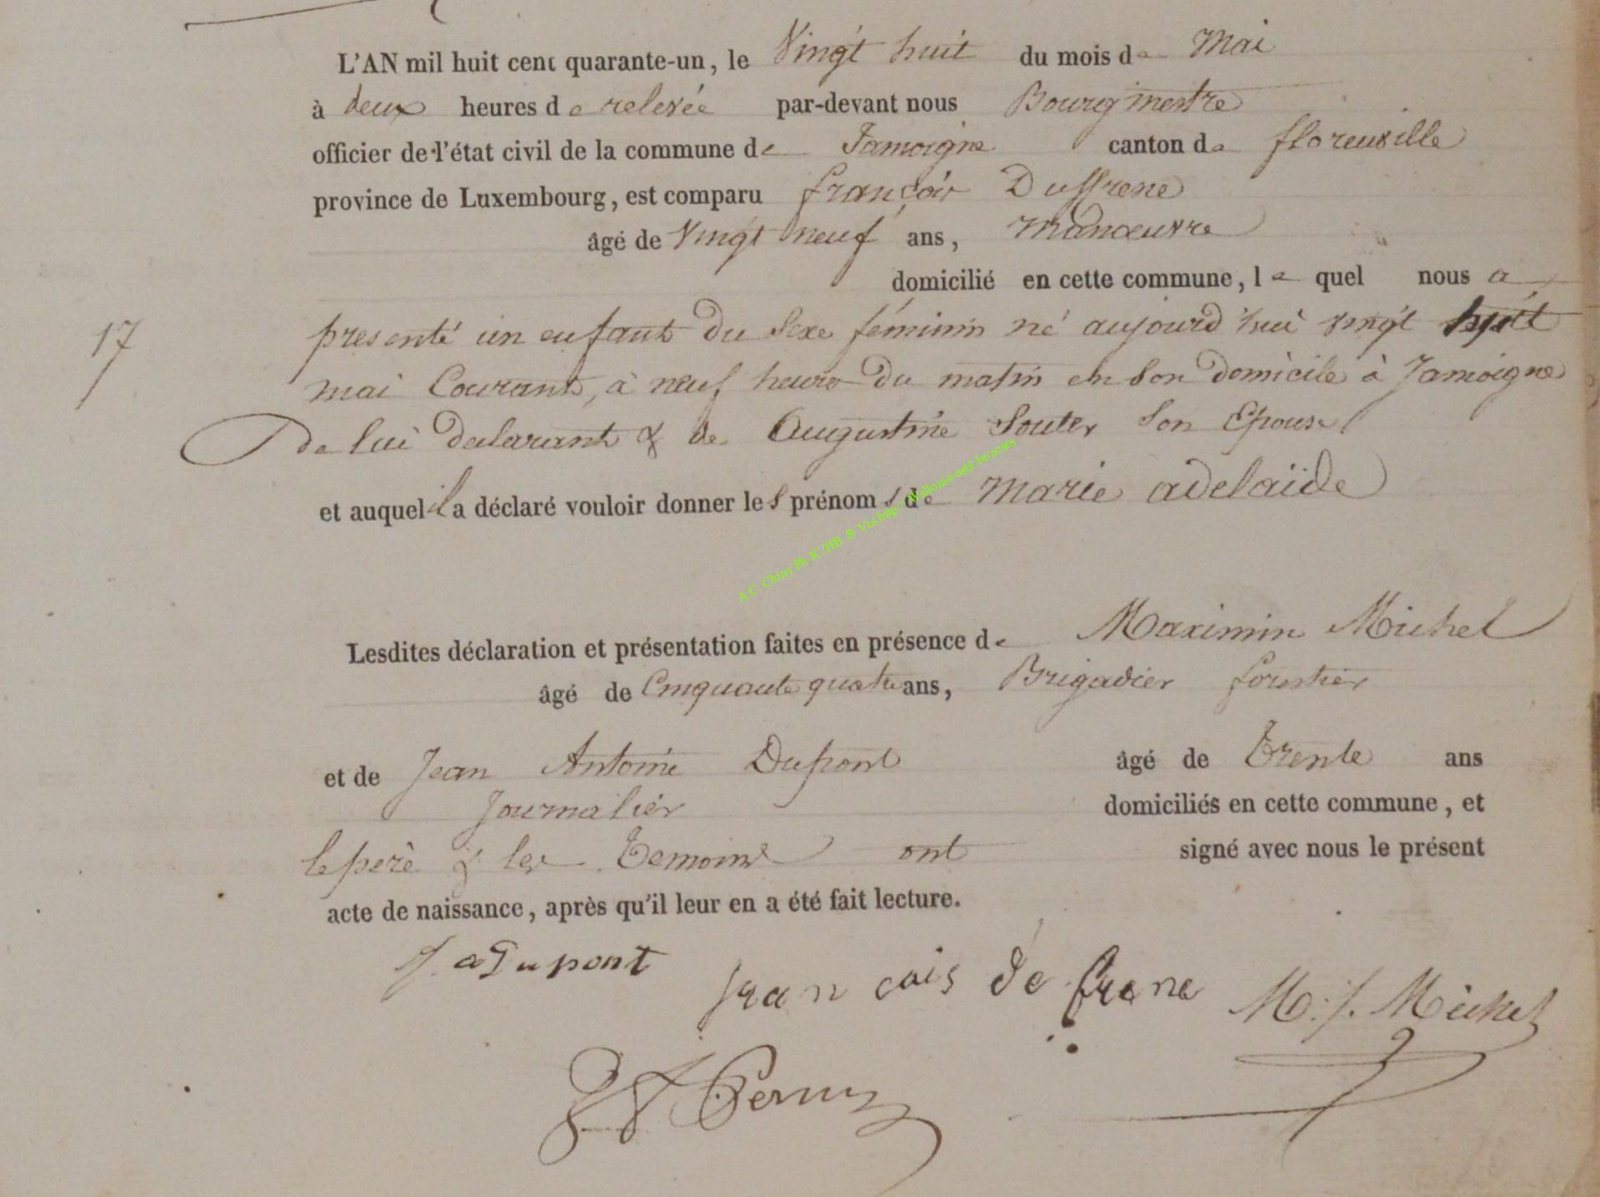 L'AN mil huit cent quarante-un, le Vingt huit du mois de Mai
à deux heures de relevée par-devant nous Bourgmestre
officier de l'état civil de la commune de Jamoigne canton de florenville
province de Luxembourg, est comparu françois Duffrene
âgé de Vingt neuf ans, manœuvre
domicilié en cette commune, le quel nous a
17 presenté un enfant du sexe féminin né aujourd'hui vingt huit
mai Courant, à neuf heures du matin en son domicile à Jamoigne
de lui declarant & de Augustine Souter son Epouse
et auquel il a déclaré vouloir donner les prénoms de Marie adelaïde
A.C. Chiny Ph.
Lesdites déclaration et présentation faites en présence de Maximin Michel
âgé de Cinquante quatre ans, Brigadier forestier
et de Jean Antoine Dupont âgé de Trente ans
Journalier domiciliés en cette commune, et
le père & les Temoins ont signé avec nous le présent
acte de naissance, après qu'il leur en a été fait lecture.
J. a Dupont
francois de frene
M. J. Michel